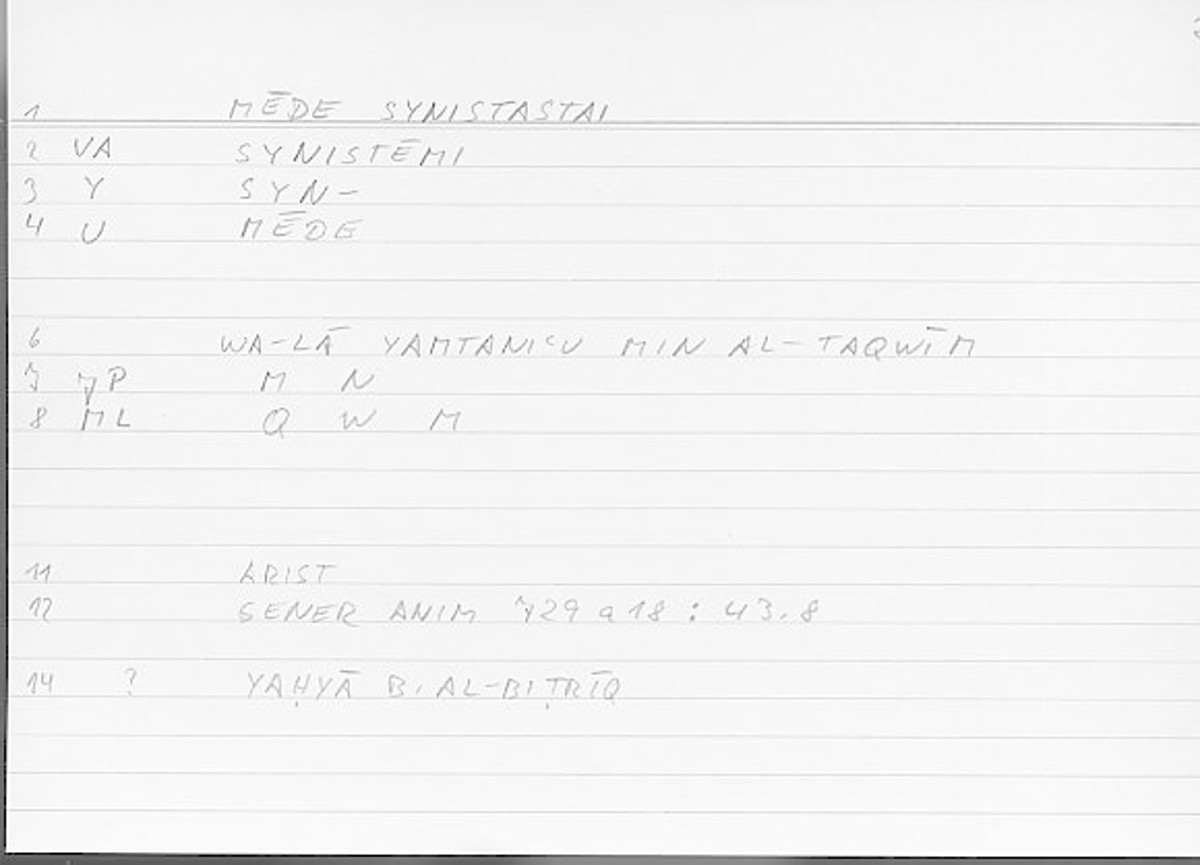 1 MĒDE SYNISTASTAI
2 VA SYNISTĒMI
3 Y SYN-
4 U MĒDE
6 WA-LĀ YAMTANIʿU MIN AL-TAQWĪM
7 7P M N
8 ML Q W M
11 ARIST
12 GENER ANIM 729 a 18 : 43.8
14 ? YAḤYĀ B. AL-BIṬRĪQ